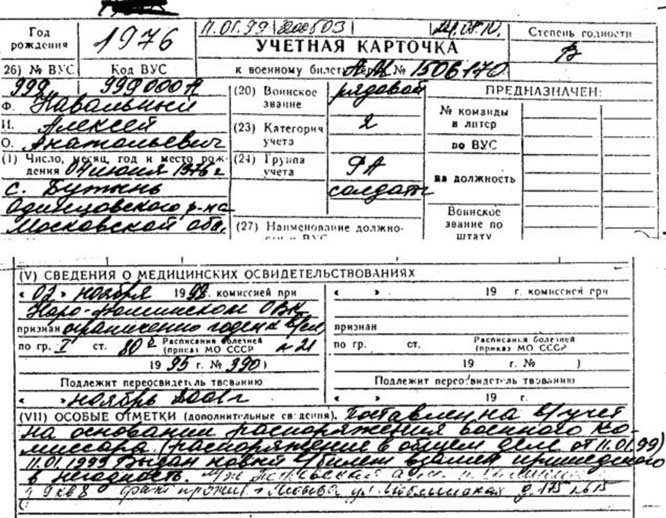 11.01.99
Год рождения 1976
УЧЕТНАЯ КАРТОЧКА
Степень годности
В
26) № ВУС
Код ВУС
к военному билету АМ № 1506170
999
999000А
(20) Воинское звание
рядовой
ПРЕДНАЗНАЧЕН:
Ф. Навальный
И. Алексей
О. Анатольевич
(23) Категория учета
2
№ команды в литер
по ВУС
(1) Число, месяц, год и место рождения 04 июня 1976 г
(24) Группа учета
РА
на должность
с. Бутынь
солдат
Одинцовского р-на
Московской обл.
(27) Наименование должно-
Воинское звание по штату
(V) СВЕДЕНИЯ О МЕДИЦИНСКИХ ОСВИДЕТЕЛЬСТВОВАНИЯХ
« 02 » ноября 1998 комиссией при
« » 19 г. комиссией при
Наро-Фоминском ОВК
признан ограниченно годен к в/сл
признан
по гр. I ст. 80
Расписания болезней
(приказ МО СССР
по гр. ст.
Расписания болезней
(приказ МО СССР
1995 г. № 390)
19 г. № )
Подлежит переосвидетельствованию
Подлежит переосвидетельствованию
« ноябрь 2001 г
« » 19 г.
(VII) ОСОБЫЕ ОТМЕТКИ (дополнительные сведения). Поставлен на в/учет
на основании распоряжения военного ко-
миссара (распоряжение в общем деле от 11.01.99)
11.01.1999 Выдан новый в/билет взамен пришедшего
в негодность.
факт прожив. г. Москва ул. Люблинская д. 175